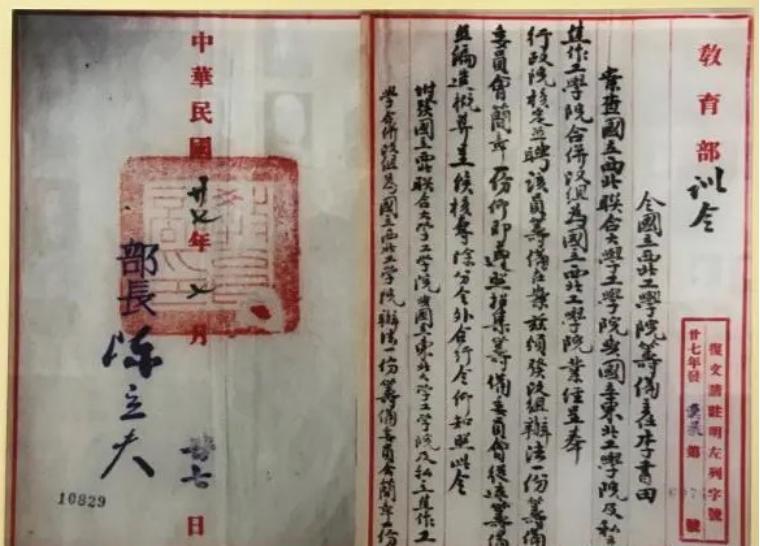 教育部訓令
復文請註明左列字號
廿七年發 漢 第 號
令國立西北工學院籌備主任李書田
案查國立西北聯合大學工學院與國立東北工學院及私立
焦作工學院合併改組為國立西北工學院業經呈奉
行政院核定並聘該員籌備在案茲頒發改組辦法一份籌備
委員會簡章一份仰即遵照招集籌備委員會從速籌備
並編造概算呈候核奪除分令外合行令仰知照此令
附發國立西北聯合大學工學院與國立東北大學工學院及私立焦作工
學合併改組為國立西北工學院辦法一份籌備委員會簡章一份
中華民國廿七年七月廿七日
部長陳立夫
10829